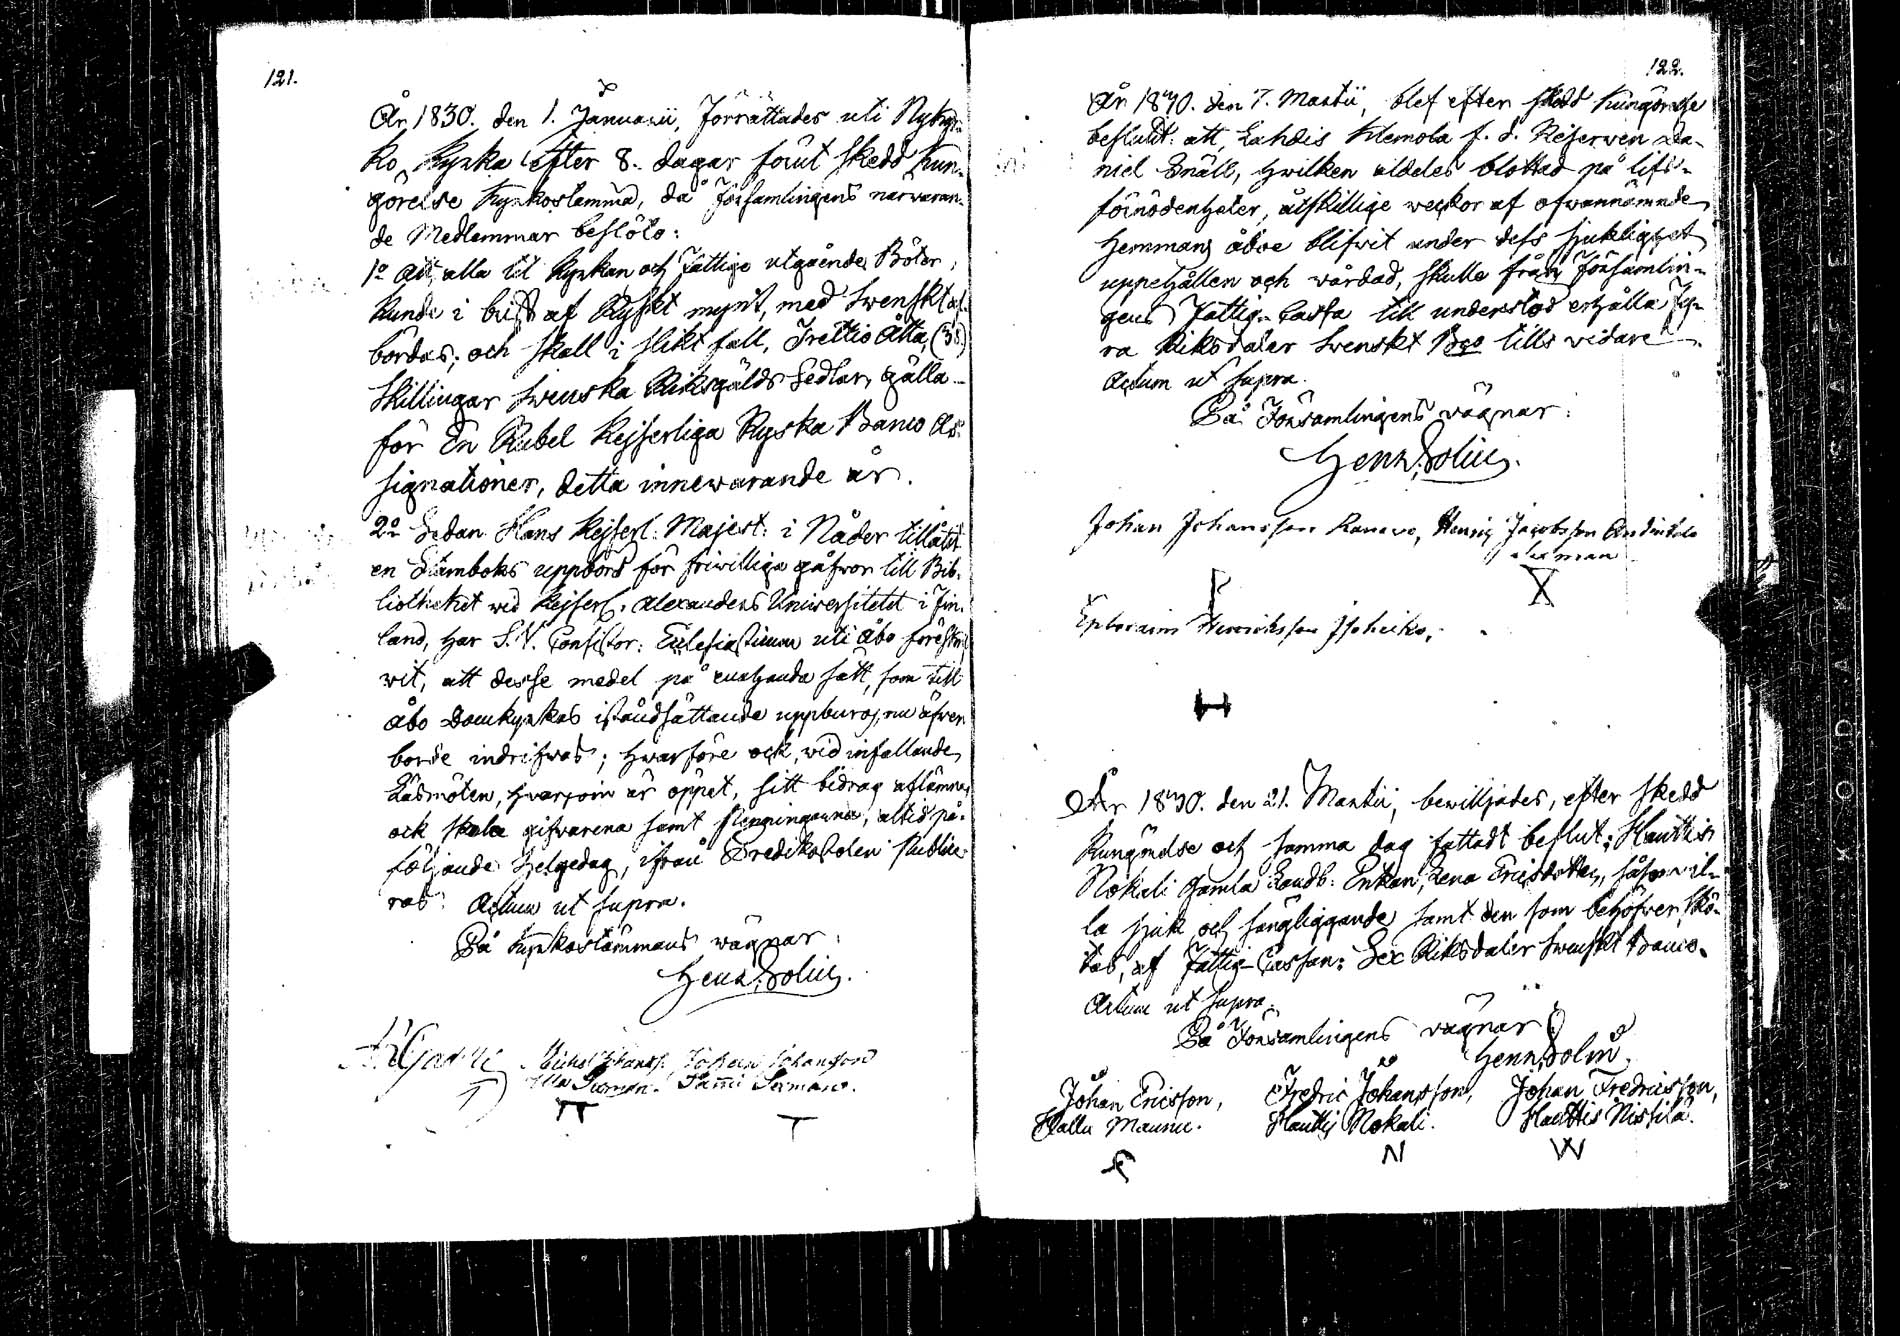 121.
År 1830. den 1. Januarii, förrättades uti Nykyr-
ko Kyrka efter 8. dagar förut skedd Kun-
görelse Kyrkostämma, då Församlingens närvaran-
de Medlemmar beslöto:
1o Att alla til Kyrkan och Fattige utgående Böter,
kunde i brist af Ryskt mynt, med Svenskt af-
bördas; och skall i slikt fall, Trettio Åtta (38)
Skillingar Svenska Riksgälds Sedlar, gälla
för En Rubel Kejserliga Ryska Banco As-
signationer, detta innewarande år.
2o Sedan Hans Kejserl: Majest: i Nåder tillåtit
en Stamboks uppbörd för friwilliga gåfvor till Bib-
liotheket wid Kejserl. Alexanders Universitetet i Fin-
land, har S. V. Consistor: Ecclesiasticum uti Åbo föreskri-
vit, att desse medel på enahanda sätt, som till
Åbo Domkyrkas iståndsättande uppburos, nu äfven
borde indrifwas; hvarföre ock, wid infallande
Läsmöten, hvarjom är öppet, sitt bidrag aflämna,
ock skola gifvarena samt penningarna, altid på-
följande Helgedag, ifrån Predikostolen publice-
ras. Actum ut supra.
På Kyrkostämmans wägnar:
Henr. Polin.
Michel Johansson Johan Johansson
Sexman. Tammi Sexman.
122.
År 1830. den 7. Martii, blef efter skedd Kungörelse
beslutit: att Lahdis Klemola f. d. Reserven Da-
niel Snäll, hwilken aldeles blottad på lifs-
förnödenheter, åtskillige weckor af ofwannämnde
Hemmans åboe blifvit under dess sjuklighet
uppehållen och wårdad, skulle från Församlin-
gens Fattig-Cassa till understöd erhålla Fy-
ra Riksdaler Svenskt Bco tills vidare.
Actum ut supra.
På Församlingens wägnar:
Henr. Polin.
Johan Johansson Henric Jacobsson
Sexman
P X
Ephraim Henriksson
H
År 1830. den 21. Martii, bewiljades, efter skedd
Kungörelse och samma dag fattadt beslut: Hauttis
Nokali gamla Landb: Enkan, Lena Ericsdotter, såsom il-
la sjuk och sängliggande samt den som behöfver skö-
tas, af Fattig-Cassan: Sex Riksdaler Swenskt Banco.
Actum ut supra.
På Församlingens wägnar
Henr. Polin.
Johan Ericsson, Fredric Johansson, Johan Fredricsson,
Hallu Maunu. Hauttis Nokali. Hauttis Nissilä.
N W